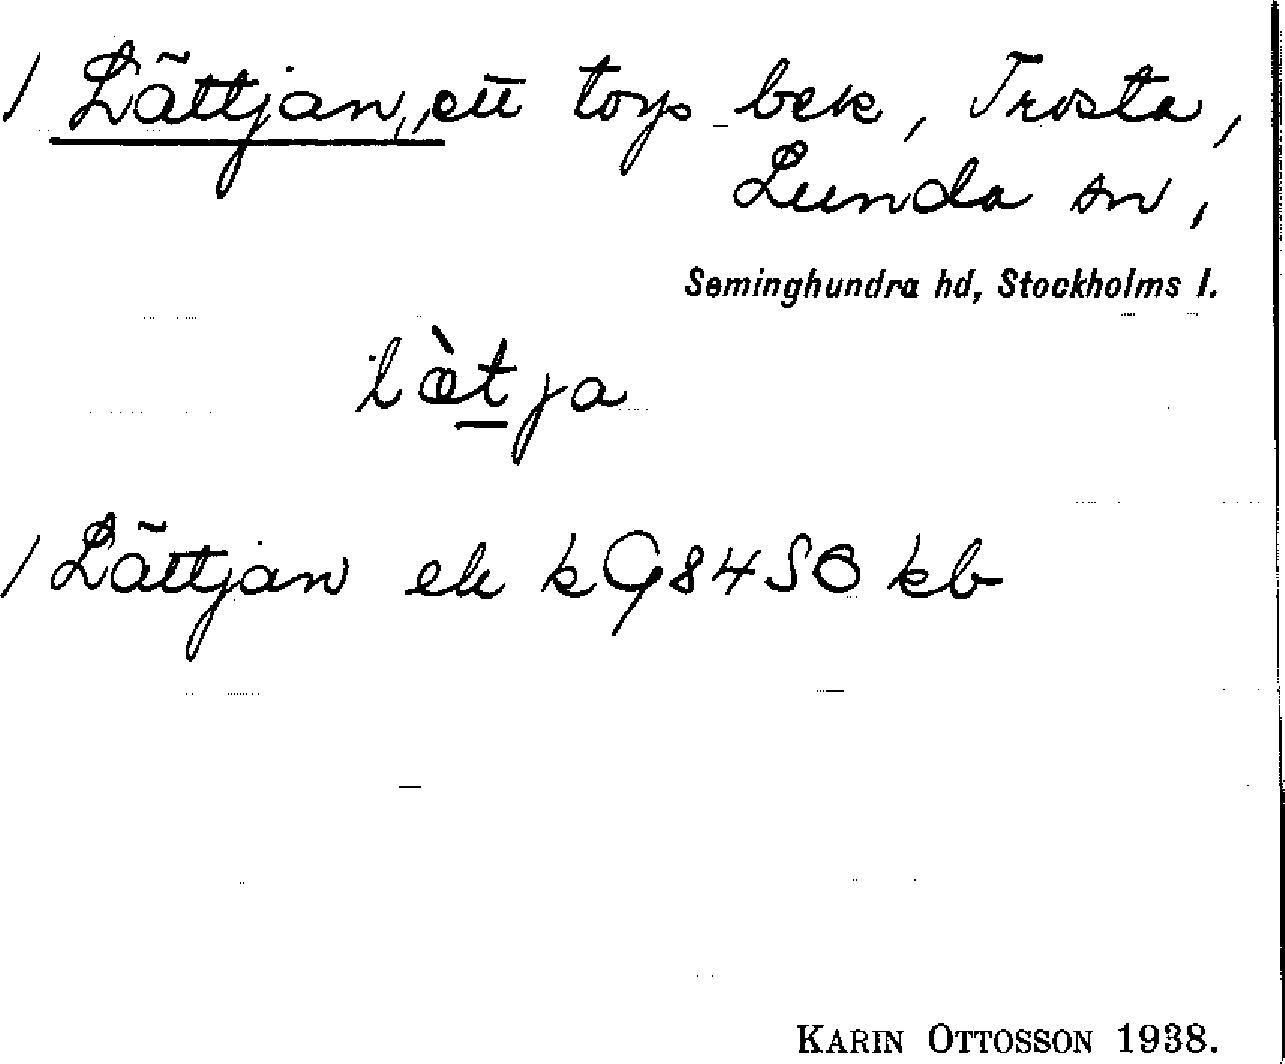 / Lättjan, ett torp bek, Trosta,
Lunda sn,
Seminghundra hd, Stockholms l.
læ̀tja
/ Lättjan ek k G84SO kb
KARIN OTTOSSON 1938.